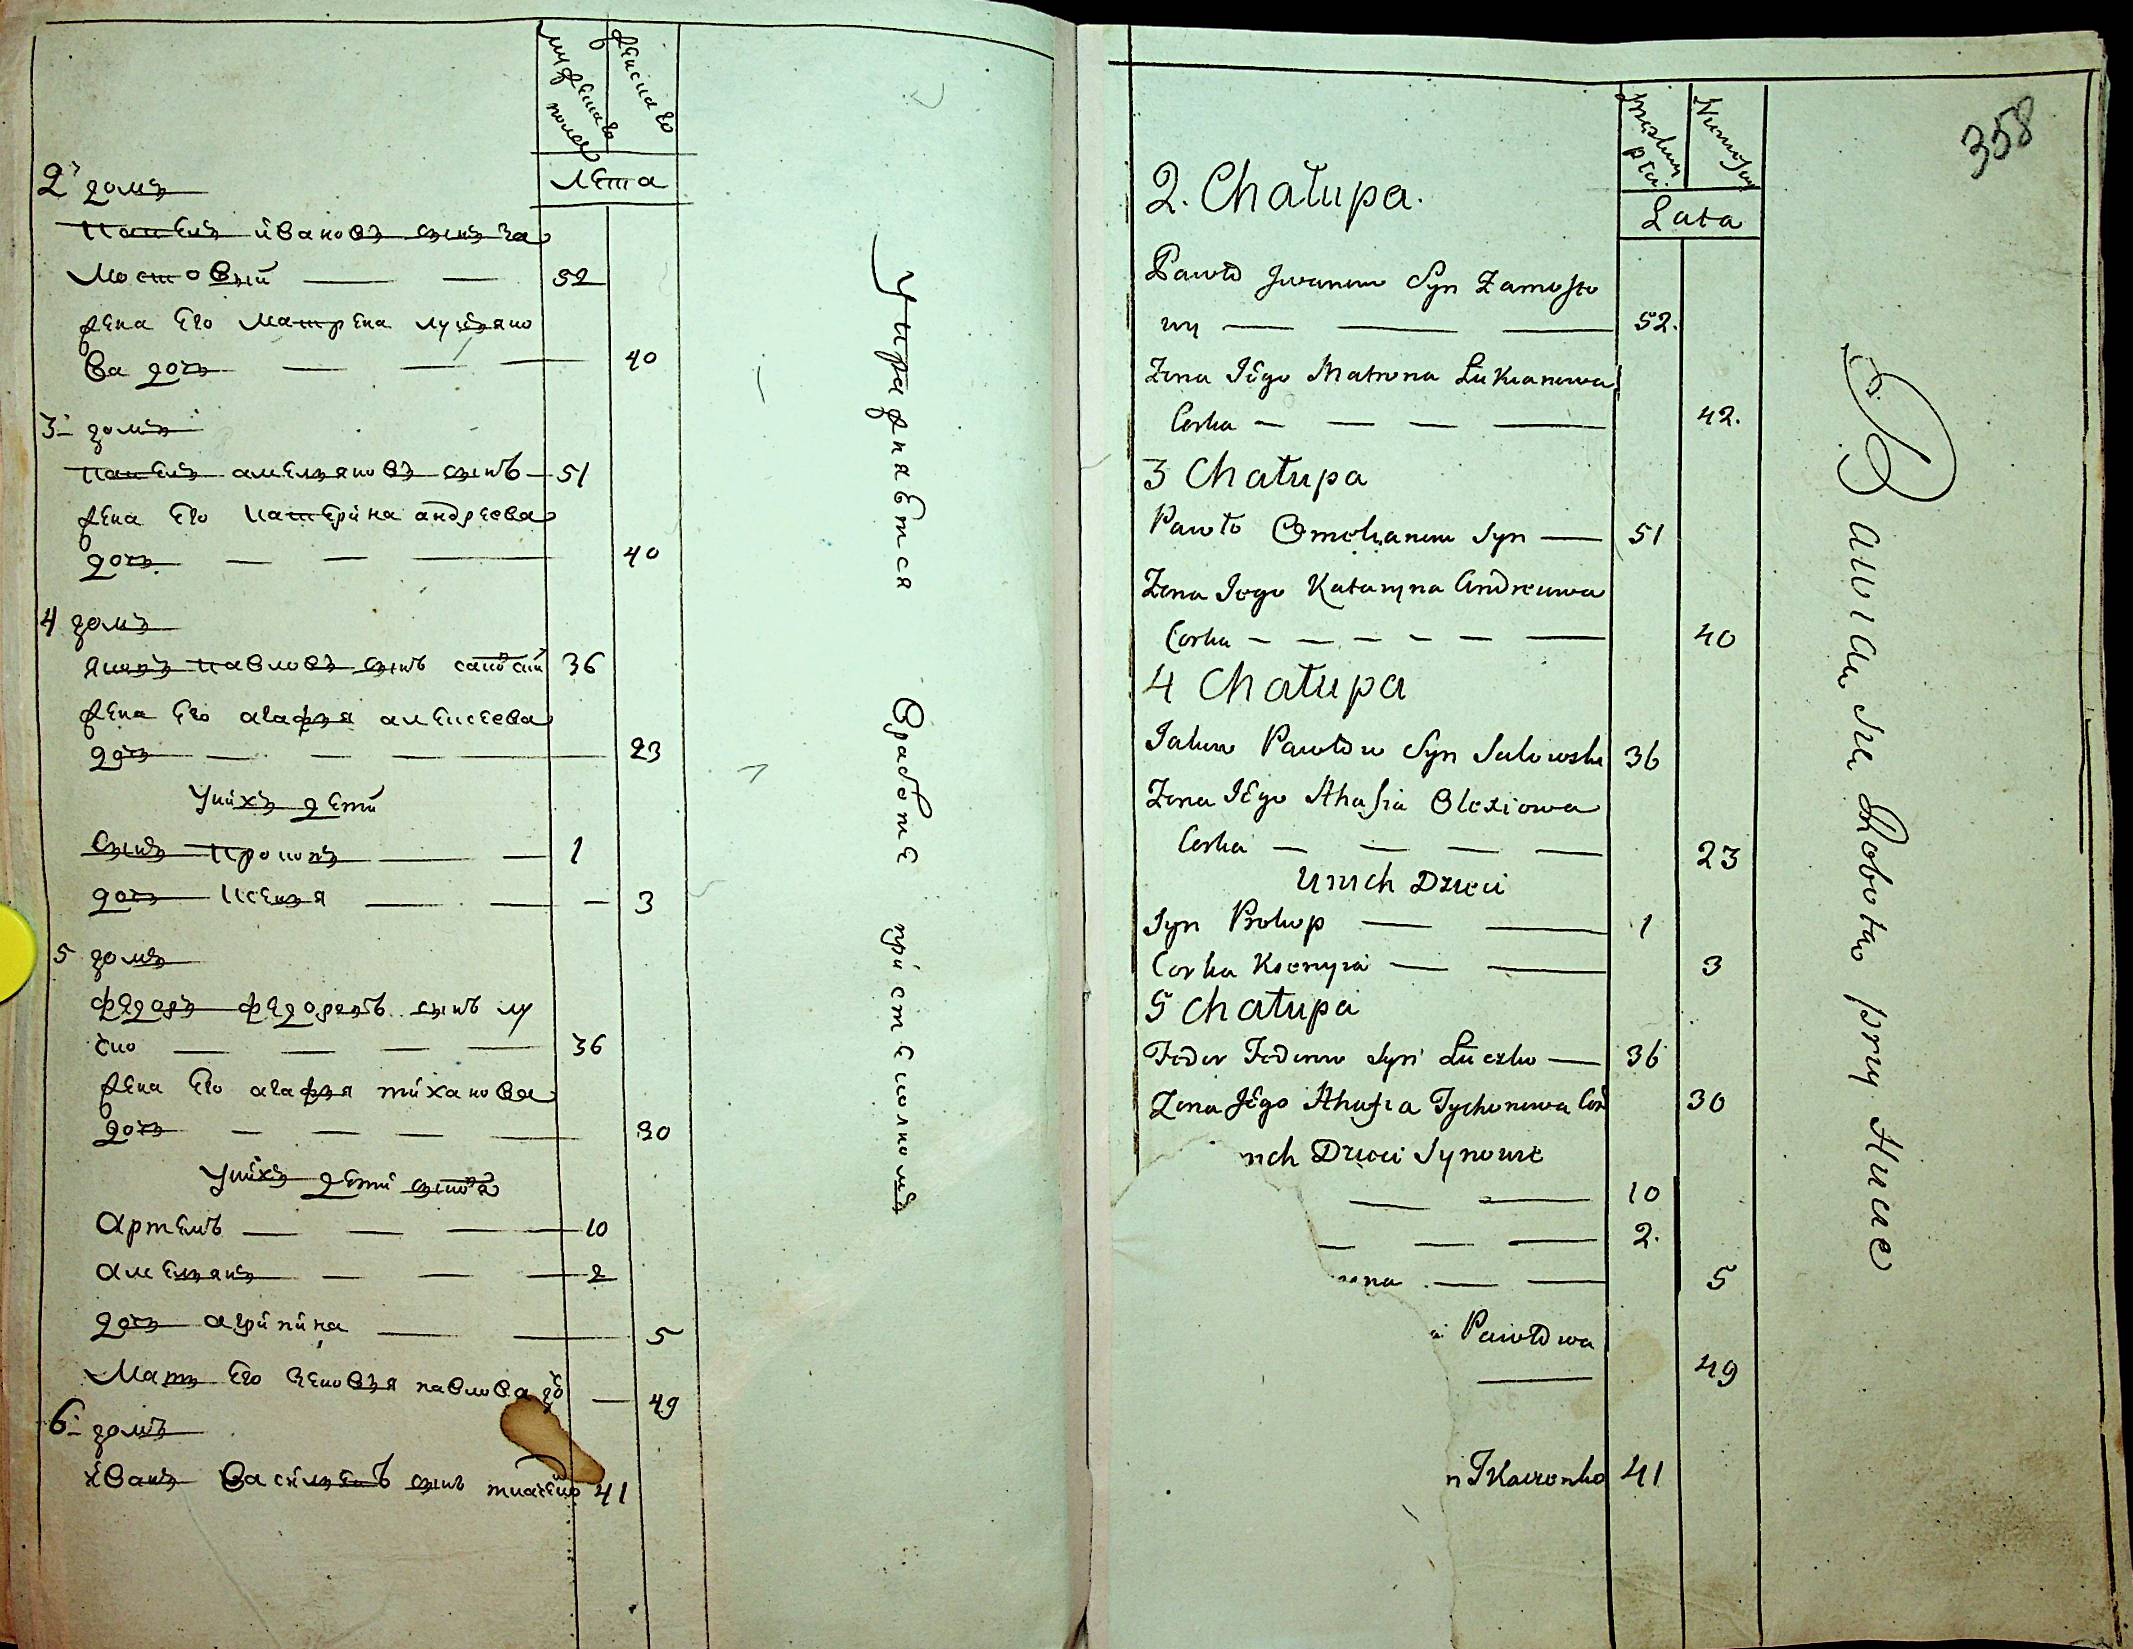 мужеска
полу
женска го
лета
2й домъ
Павелъ ивановъ сынъ За
мостовый — — 52
жена его матрена лукъяно
ва дочь — — — 40
3й домъ
Павелъ амельяновъ сынъ — 51
жена его катерина андреева
дочь — — — 40
4 домъ
яковъ павловъ сынъ 36
жена его агафья алексеева
дочь — — — 23
Уних дети
сынъ прокопъ — — 1
дочь ксенья — — — 3
5 домъ
федоръ федоровъ сынъ лу
чко — — — — 36
жена его агафья тиханова
дочь — — — — 30
Унихъ дети сыновя
Артемъ — — — 10
амельянъ — — — 2
дочь агрипина — — 5
Мать его зеновъя павлова до — 49
6й домъ
иванъ васильевъ сынъ ткаченко 41
Упражняется вработе пристешолкомъ
358
Męzkiey
płci
Lata
2. Chałupa.
Pawło Iwanow Syn Zamosto
wy — — — 52.
Zona IEgo Matrona Łukianowa
Corka — — — — 42.
3 Chałupa
Pawło Omelianow Syn — 51
Zona Iego Kataryna Andreiowa
Corka — — — — — — 40
4 Chałupa
Iakow Pawłow Syn Sulowski 36
Zona IEgo Ahafia Olexiowa
Corka — — — — 23
Unich Dzieci
Syn Prokop — — 1
Corka Ksenyia — — 3
5 Chałupa
Fedor Fedorow Syn Łuczko — 36
Zona JEgo Ahafia Tychonowa Cor 30
nich Dzieci Synowie
— — 10
— — — 2.
na — — 5
Pawłowa
— 49
n Tkaczenko 41
Bawiąu sie Robotaw przy Huce